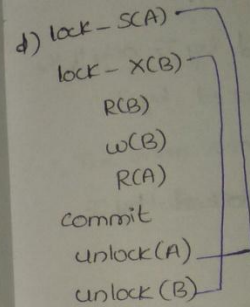 d) lock - S(A)
lock - X(B)
R(B)
W(B)
R(A)
commit
unlock(A)
unlock(B)